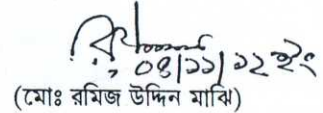 ০৪/১১/১২ ইং
(মোঃ রমিজ উদ্দিন মাঝি)